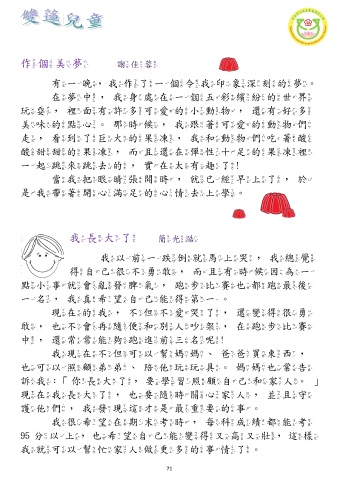 雙蓮兒童
作個美夢 謝佳蓉
有一晚，我作了一個令我印象深刻的夢。
在夢中，我身處在一個五彩繽紛的世界
玩耍，裡面有許多可愛的小動物，還有好多
美味的點心。那時候，我跟著可愛的動物們
走，看到了巨大的果凍，我和動物們吃著酸
酸甜甜的果凍，而且還在彈性十足的果凍裡
一起跳來跳去的，實在太有趣了！
當我把眼睛張開時，就已經早上了，於
是我帶著開心滿足的心情去上學。
我長大了 簡光
我以前一跌倒就馬上哭，我總覺
得自己很不勇敢，而且有時候因為一
點小事就會亂發脾氣，跑步比賽也都跑最後
一名，我真希望自己能得第一。
現在的我，不但不愛哭了，還變得很勇
敢，也不會再隨便和別人吵架，在跑步比賽
中，還常常能夠跑進前三名呢！
我現在不但可以幫媽媽、爸爸買東西，
也可以照顧弟弟、陪他玩玩具。媽媽也常告
訴我：「你長大了，要學習照顧自己和家人。」
現在我長大了，也要隨時關心家人，並且守
護他們，我發現這才是最重要的事。
我很希望在期末考時，每科成績都能考
95 分以上，也希望自己能變得又高又壯，這樣
我就可以幫忙家人做更多的事情了。
71